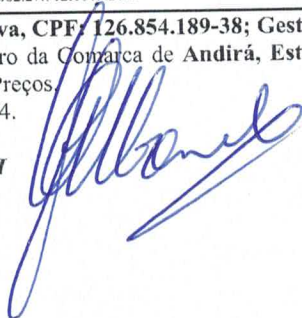 va, CPF: 126.854.189-38; Gest
ro da Comarca de Andirá, Est
Preços.
4.